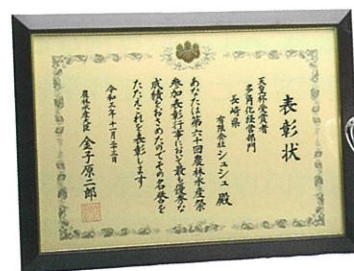 表彰状
天皇杯受賞者
多角化経営部門
長崎県
有限会社シュシュ殿
あなたは第六十回農林水産祭
参加表彰行事において最も優秀な
成績をおさめたのでその名誉を
たたえこれを表彰します
令和三年十一月二十三日
農林水産大臣 金子原二郎